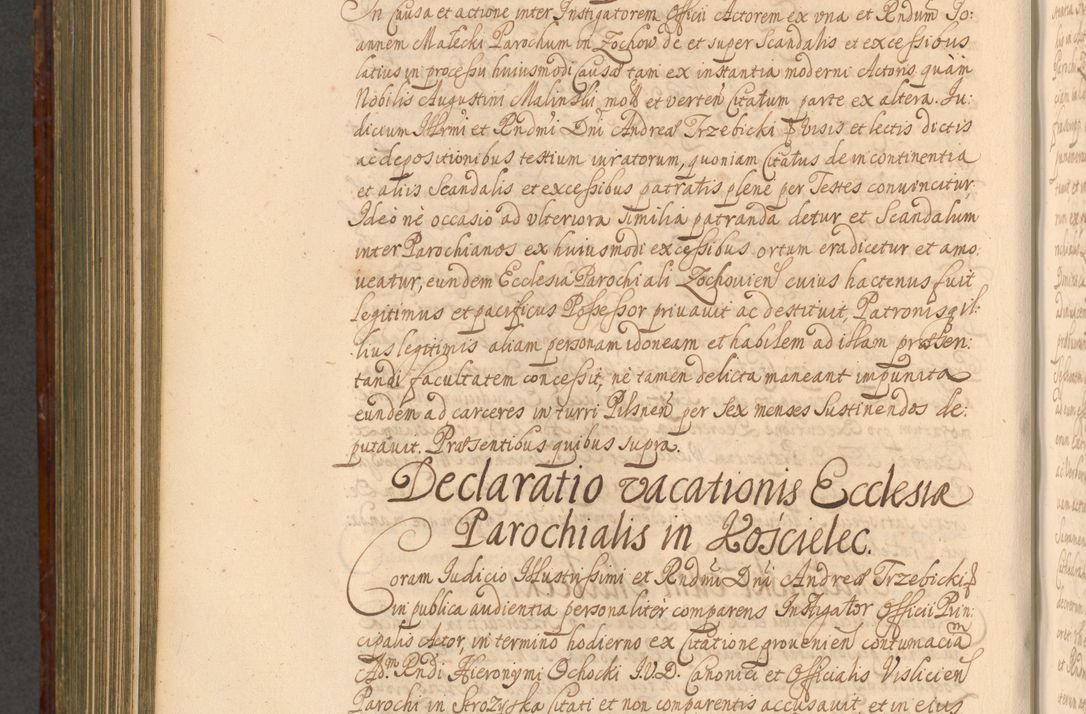 In Causa et actione inter Instigatorem Officii Actorem ex una et Rndum Jo-
annem Małecki Parochum in Zochow de et super Scandalis et excessibus
latius in processu huiusmodi Causæ tam ex instantia moderni Actoris quàm
Nobilis Augustini Malinski mot et verten Citatum parte ex altera. Ju-
dicium Illrmi et Rndmi Dni Andreæ Trzebicki visis et lectis dictis
ac depositionibus testium iuratorum, quoniam Citatus de incontinentia
et aliis Scandalis et excessibus patratis plenè per Testes convincitur
Ideò nè occasio ad ulteriora similia patranda detur et Scandalum
inter Parochianos ex huiusmodi excessibus ortum eradicetur et amo-
veatur, eundem Ecclesia Parochiali Zochovien cuius hactenus fuit
legitimus et pacificus Possessor privavit ac destituit, Patronisq il-
lius legitimis aliam personam idoneam et habilem ad illam præsen:
tandi facultatem concessit, nè tamen delicta maneant impunita
eundem ad carceres in turri Pilsnen per sex menses sustinendos de:
putavit. Præsentibus quibus supra.
Declaratio vacationis Ecclesiæ
Parochialis in Kościelec.
Coram Judicio Illustrissimi et Rndmi Dni Andreæ Trzebicki
in publica audientia personalitèr comparens Instigator Officii Prin:
cipalis Actor, in termino hodierno ex Citatione provenien contumaciam
Adm Rndi Hieronymi Ochocki I.V.D. Canonici et Officialis Vislicien
Parochi in Strozyska Citati et non comparentis accusavit, et in eius